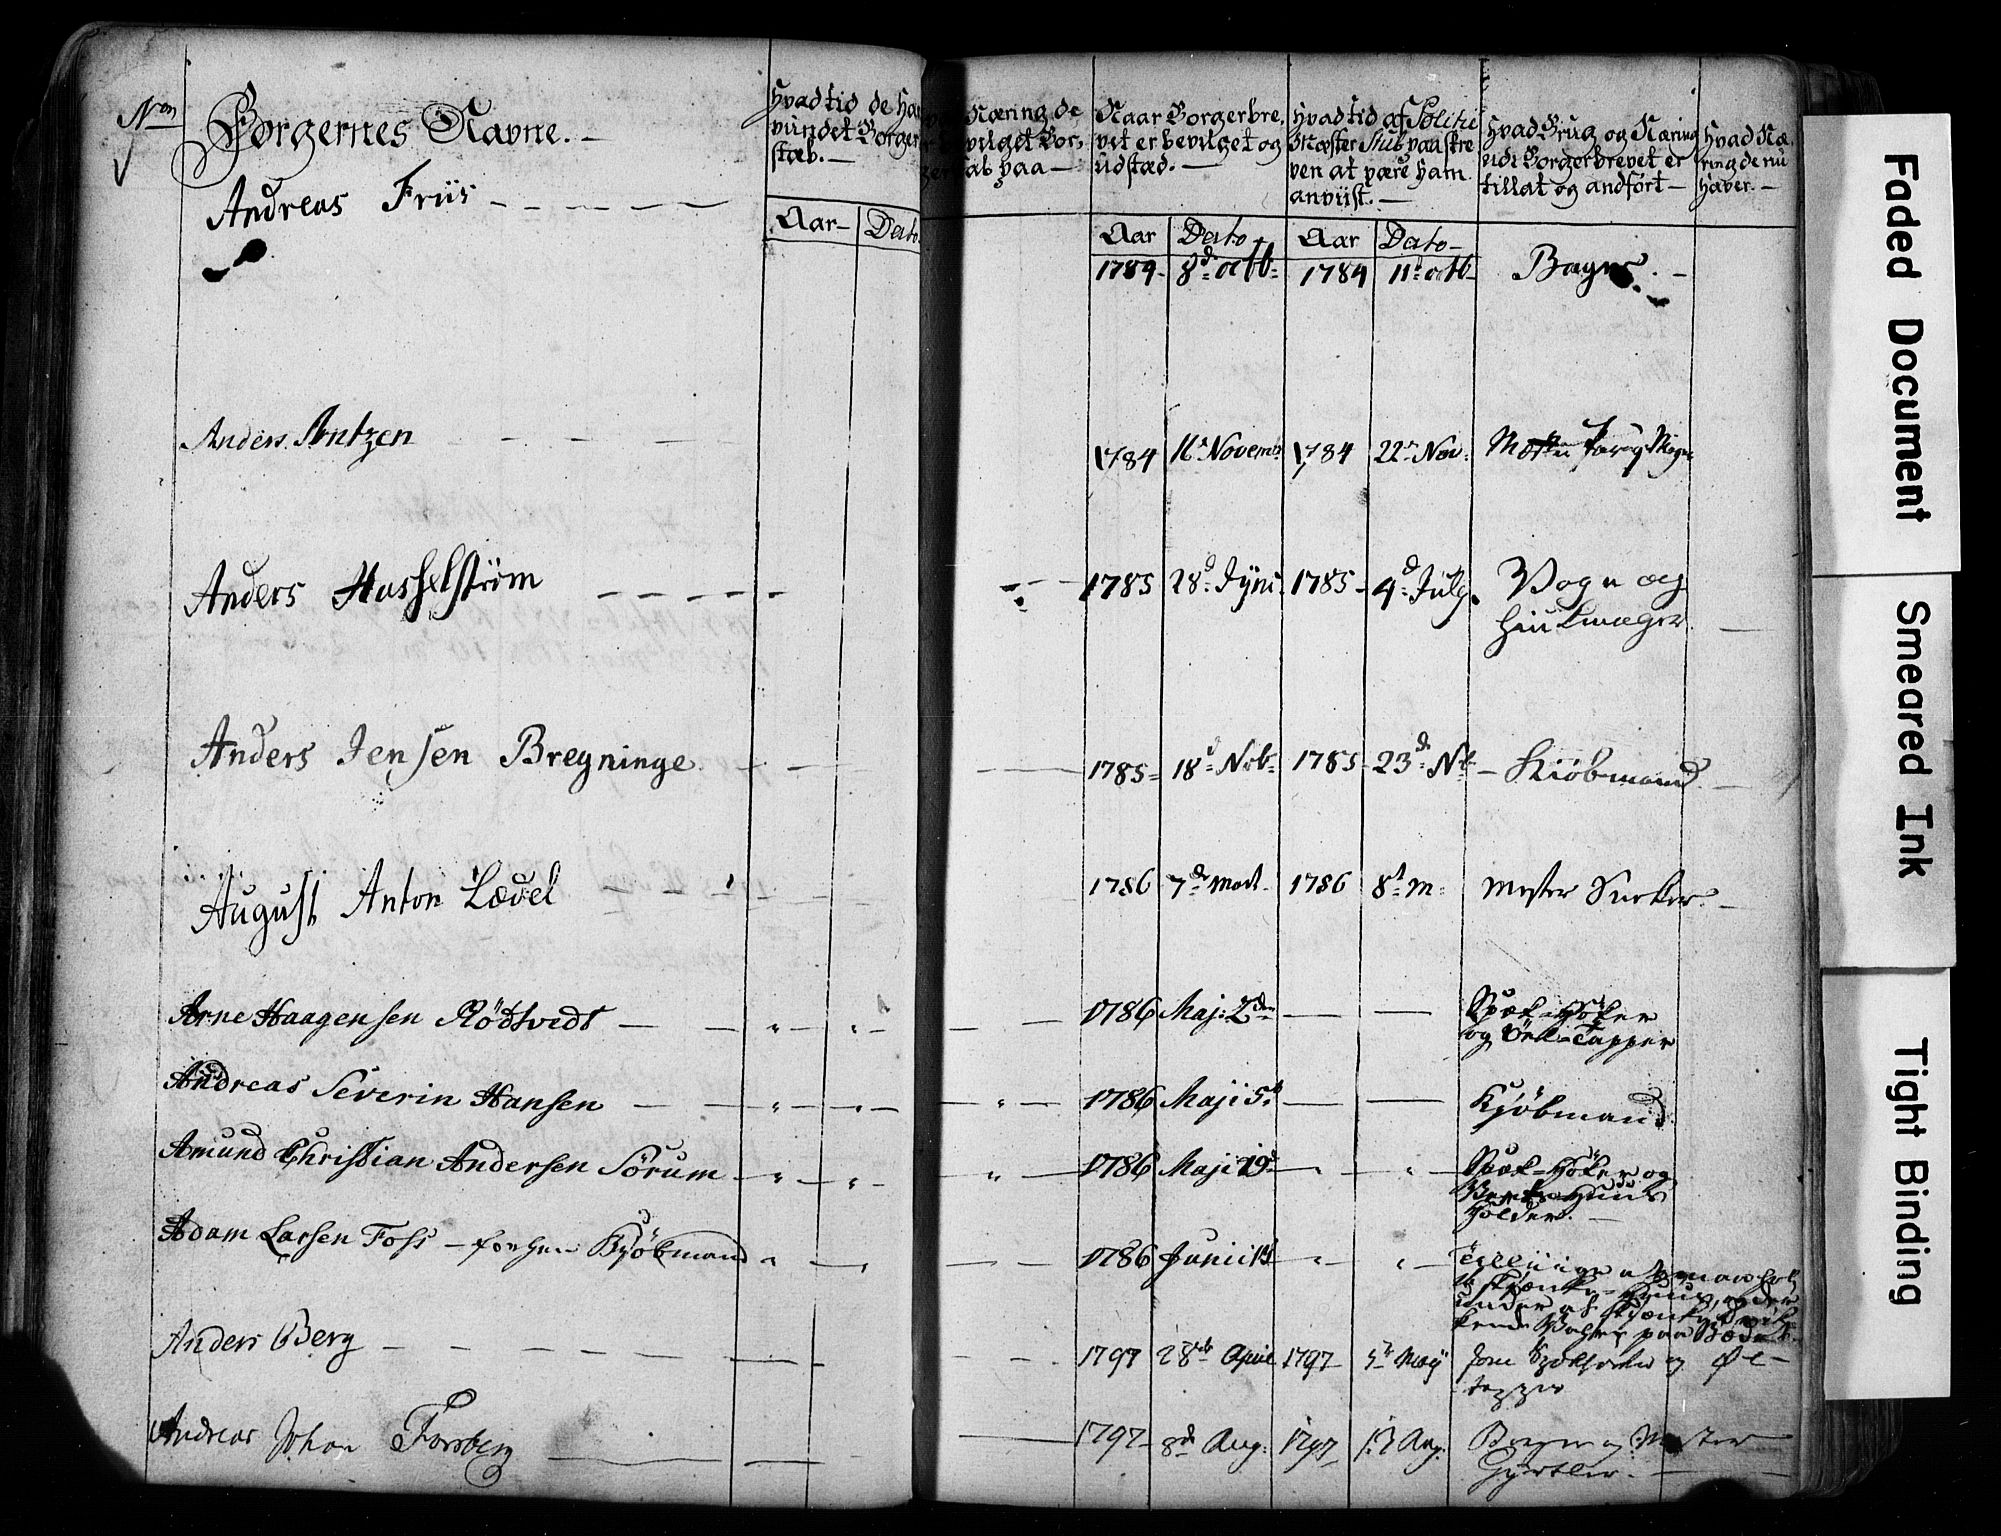 Non
Borgernes Navne. —
Hvad tid de Har
vundet Borger
skab. —
Næring de
bevilget Bor,
gerskab paa —
Naar Borgerbre,
vet er bevilget og
udstæd. —
Hvad tid af Politie
Mæster Stub paaskre
ven at være ham
anviist. —
Hvad Brug og Næring
udi Borgerbrevet er
tillat og andført —
Hvad Næ,
ring de nu
haver. —
Aar — Dato
Aar Dato Aar Dato —
Andreas Friis — 1784 8d octb 1784 11t octb Bager. —
Anders Antzen 1784 16 Novemb 1784 22 Nov: Mæster
Anders Hasselstrøm 1785 28d Jyni 1785 4d July Vogn og
Hiulmager
Anders Jensen Bregninge 1785 18d Nob 1785 23d Nb — Kiöbmand. —
August Anton Lævel 1786 7de Mart 1786 8t M: Mester
Arne Haagensen Rödtvedt — 1786 Maj: 2den — Spæk-Höker
og Öell-Tapper
Andreas Severin Hansen — 1786 Maji 5t — Kjöbmand
Amund Christian Andersen Sörum — 1786 Maji 19d — Spæk-Höker og
Huus
Holder. —
Adam Larsen Foss — forhen Kjöbmand 1786 Junii
Anders Berg — 1797 28de April 1797 5te May og Øl-
tapper
Andreas Johan Forsberg — 1797 8de Aug: 1797 Aug. Borger og Mester
Gjørtler. —
Faded Document
Smeared Ink
Tight Binding